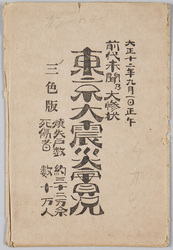 大正十二年九月一日正午
前代未聞乃大惨状
東京大震災大火實況
三色版
焼失戸数 約三十二万余
死傷者 数十万人